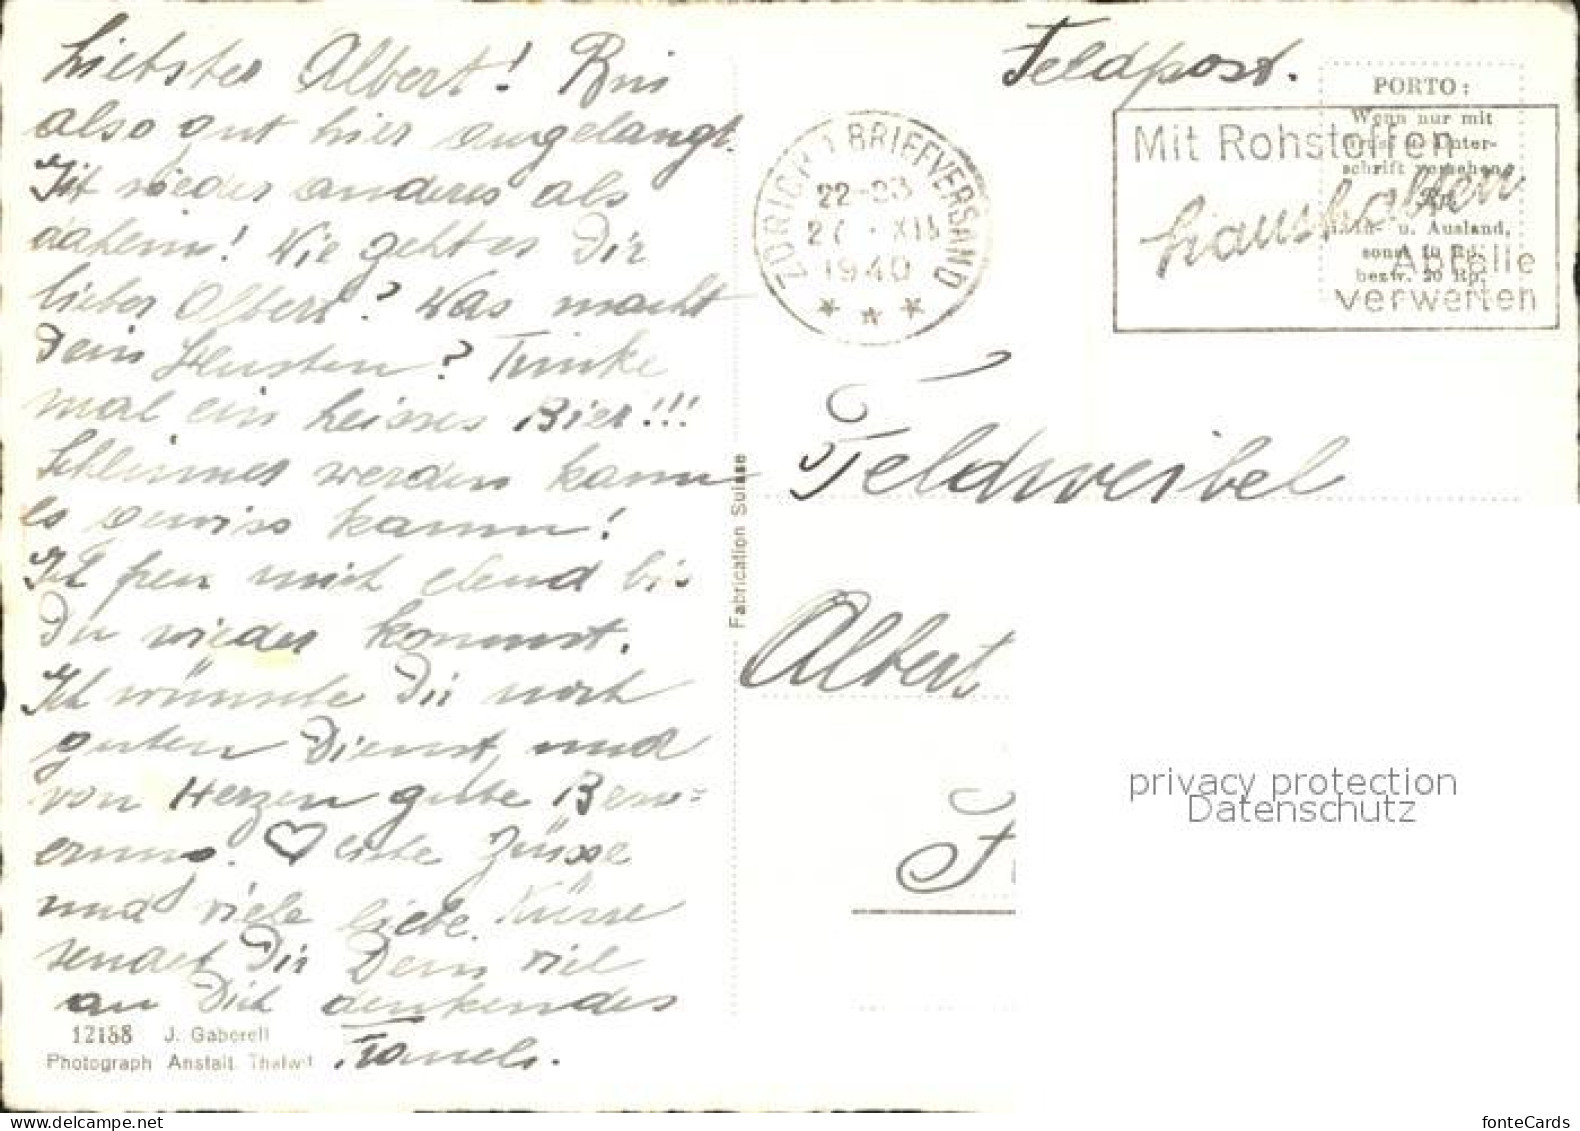 Liebster Albert! Bin
also gut hier angelangt.
Ist wieder anderes als
daheim! Wie geht es Dir
lieber Albert? Was macht
Dein Husten? Trinke
mal ein heisses Bier!!!
Schlimmer werden kann
es gewiss kaum!
Ich freu mich elend bis
Du wieder kommst.
Ich wünsche Dir noch
guten Dienst, und
von Herzen gute Bess=
erung. liebe Grüsse
und viele liebe Küsse
sendet Dir Dein viel
an Dich denkendes
12188 J. Gaberell
Photograph Anstalt Thalwil
Fabrication Suisse
Feldpost.
ZÜRICH 1 BRIEFVERSAND
22-23
XII
1940
PORTO:
Wenn nur mit
Unter-
schrift versehen
u. Ausland,
sonst 10 Rp.
bezw. 20 Rp.
Mit Rohstoffen
haushalten
Abfälle
verwerten
Feldweibel
Albert
privacy protection
Datenschutz
fonteCards